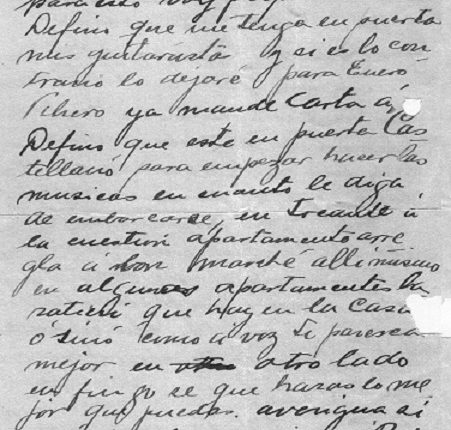 para eso voy
Defino que me tenga en puerta
mis guitarrista y si es lo con
trario lo dejaré para Enero
ya mande Carta á
Defino que este en puerta Cas
tellano para empezar hacer las
musicas en cuanto le diga
de embarcarse, en trcante á
la cuestion apartamento arre
gla á bon marché alli mismo
en algunos apartamentos ba
ratieri que hay en la Casa
ó sinó como á voz te paresca
mejor en otro lado
en fin yo se que haras lo me
jor que puedas. averigua si